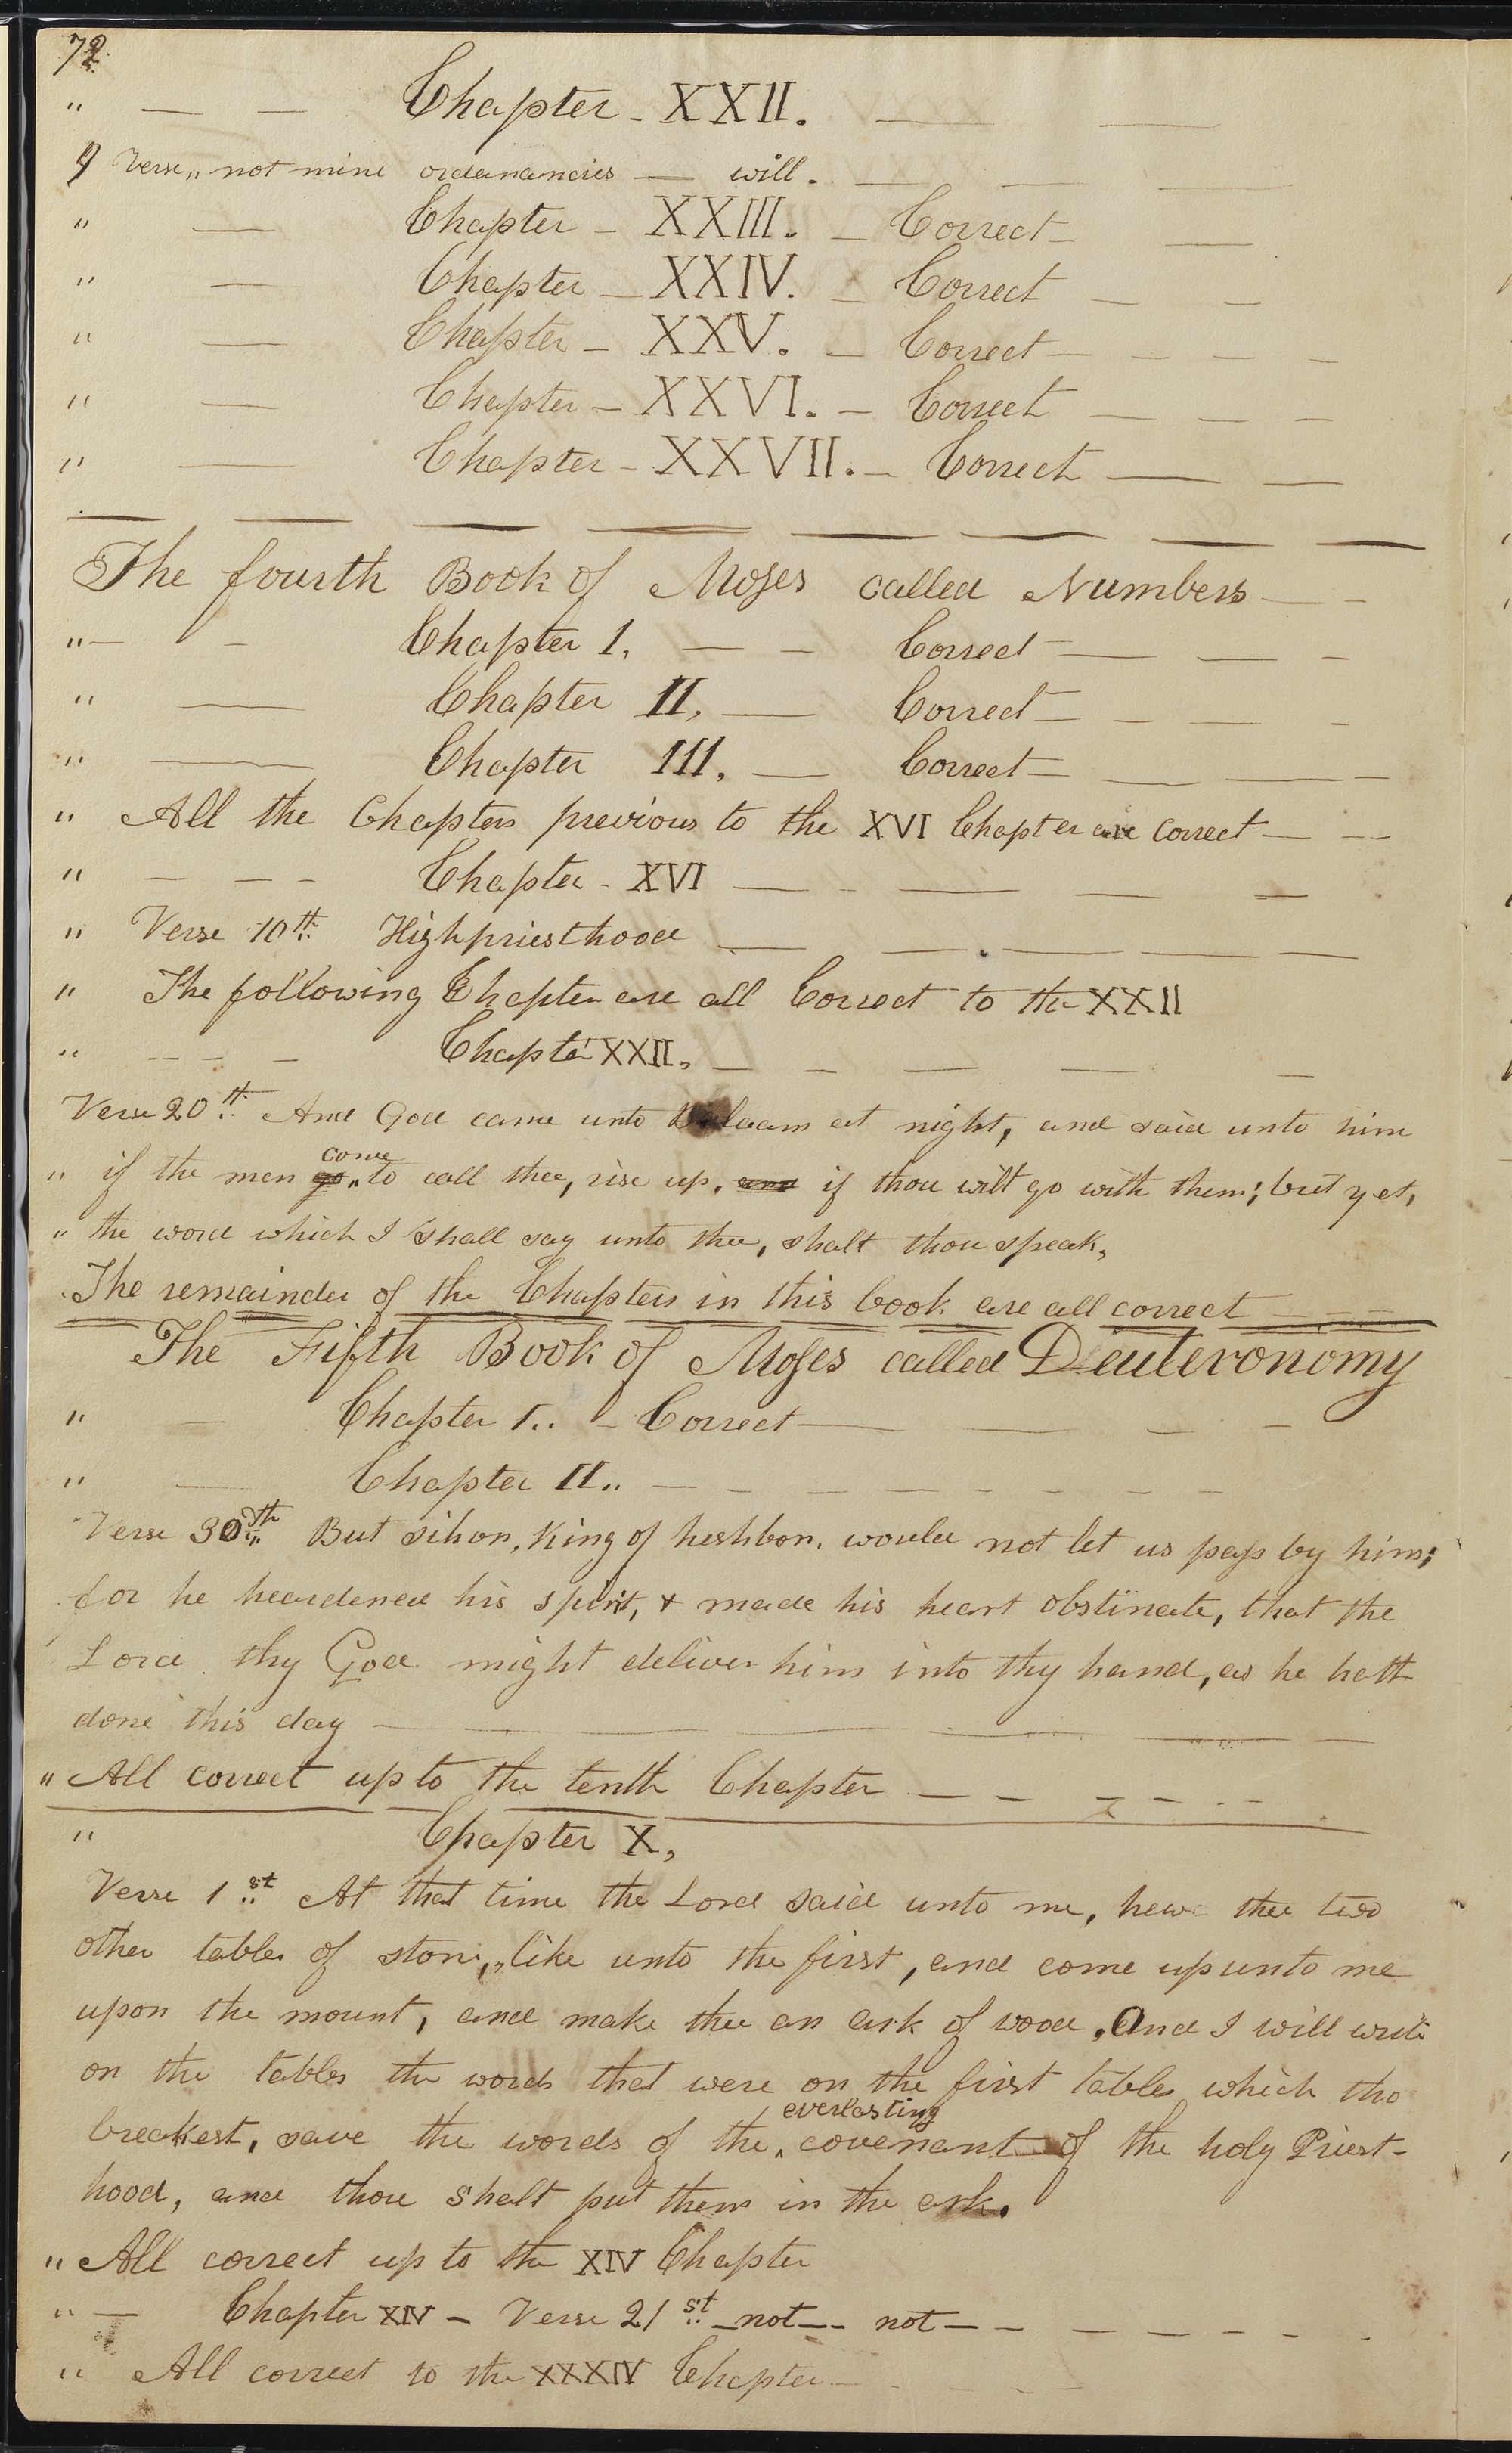 72
" — — Chapter - XXII. — —
9 Verse,, not mine ordanancies — will. — — —
" — Chapter - XXIII. - Correct — —
" — Chapter - XXIV. - Correct — —
" — Chapter - XXV. - Correct — — — —
" — Chapter - XXVI. - Correct — — —
" — Chapter - XXVII. - Correct — —
The fourth Book of Moses called Numbers — —
" — — Chapter I. — — Correct — — —
" — Chapter II. — Correct — — — —
" — Chapter III. — Correct — — — —
" All the Chapters previous to the XVI Chapter are correct — —
" — — — Chapter - XVI — - — — —
" Verse 10th Highpriesthood — — — — —
" The following Chapter are all Correct to the XXII
" — — — — Chapter XXII. — — — — —
Verse 20th And God came unto Balaam at night, and said unto him
" if the men go come to call thee, rise up, and if thou wilt go with them; but yet,
" the word which I shall say unto thee, shalt thou speak,
The remainder of the Chapters in this book are all correct — — —
The Fifth Book of Moses called Deuteronomy
" — Chapter I.. - Correct — — — —
" — Chapter II.. — — — — — — — — —
Verse 30th But sihon, King of heshbon, would not let us pass by him;
for he heardened his spirit, & made his heart obstinate, that the
Lord thy God might deliver him into thy hand, as he hath
done this day — — — — — — —
" All correct up to the tenth Chapter — — — — — —
" Chapter X,
Verse 1st At that time the Lord said unto me, hew thee two
other tables of stone,, like unto the first, and come up unto me
upon the mount, and make thee an ark of wood, And I will write
on the tables the words that were on the first tables which tho
breakest, save the words of the everlasting covenant of the holy Priest-
hood, and thou shalt put them in the ark.
" All correct up to the XIV Chapter
" — Chapter XIV - Verse 21st - not — not — — — — — — —
" All correct to the XXXIV Chapter — — — —